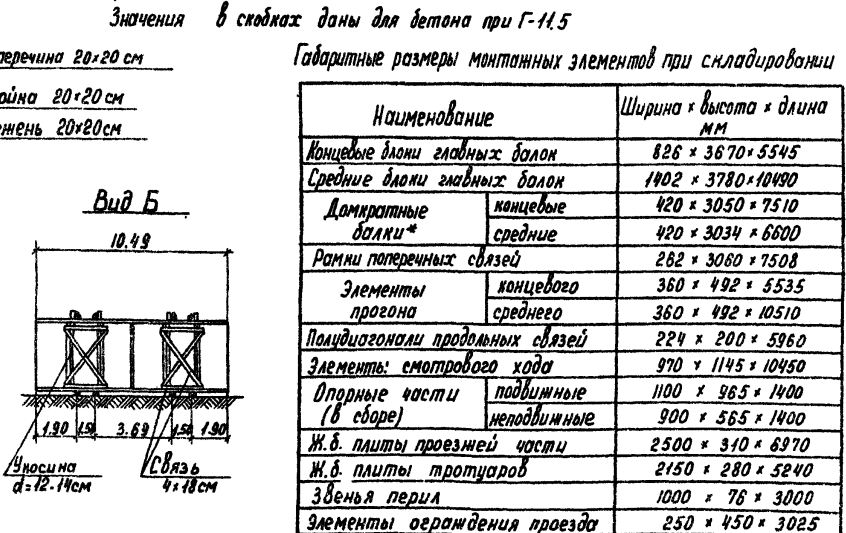 Значения в скобках даны для бетона при Г-11.5
перечина 20×20 см
ойка 20×20 см
жень 20×20см
Вид Б
10.49
1.90 1.50 3.69 1.50 1.90
Укосина
d=12-14см
Связь
4×18см
Габаритные размеры монтажных элементов при складировании
Наименование Ширина × высота × длина
мм
Концевые блоки главных балок 826 × 3670 × 5545
Средние блоки главных балок 1402 × 3780 × 10490
Домкратные балки* концевые 420 × 3050 × 7510
средние 420 × 3034 × 6600
Рамки поперечных связей 262 × 3060 × 7508
Элементы прогона концевого 360 × 492 × 5535
среднего 360 × 492 × 10510
Полудиагонали продольных связей 224 × 200 × 5960
Элементы смотрового хода 970 × 1145 × 10450
Опорные части (в сборе) подвижные 1100 × 965 × 1400
неподвижные 900 × 565 × 1400
Ж.б. плиты проезжей части 2500 × 310 × 6970
Ж.б. плиты тротуаров 2150 × 280 × 5240
Звенья перил 1000 × 76 × 3000
Элементы ограждения проезда 250 × 450 × 3025